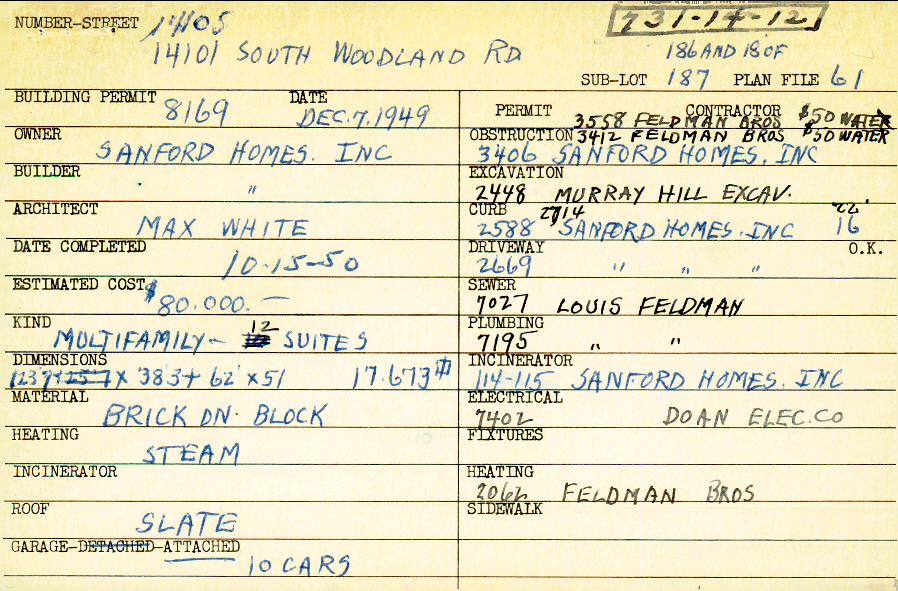 731-14-12
NUMBER-STREET 14105
14101 SOUTH WOODLAND RD
186 AND 18 OF
SUB-LOT 187 PLAN FILE 61
BUILDING PERMIT 8169 DATE DEC. 7, 1949
OWNER
SANFORD HOMES. INC
BUILDER
"
ARCHITECT
MAX WHITE
DATE COMPLETED
10-15-50
ESTIMATED COST $80.000. —
KIND
MULTIFAMILY - 12 SUITES
DIMENSIONS
x 383 + 62' x 51 17.673 #
MATERIAL
BRICK ON BLOCK
HEATING
STEAM
INCINERATOR
ROOF
SLATE
GARAGE-DETACHED-ATTACHED
10 CARS
PERMIT CONTRACTOR
3558 FELDMAN BROS $50 WATER
OBSTRUCTION 3412 FELDMAN BROS $50 WATER
3406 SANFORD HOMES, INC
EXCAVATION
2448 MURRAY HILL EXCAV.
CURB 2714 22.
2588 SANFORD HOMES. INC 16
DRIVEWAY O.K.
2669 " " "
SEWER
7027 LOUIS FELDMAN
PLUMBING
7195 " "
INCINERATOR
114-115 SANFORD HOMES. INC
ELECTRICAL
7402 DOAN ELEC. CO
FIXTURES
HEATING
2062 FELDMAN BROS
SIDEWALK